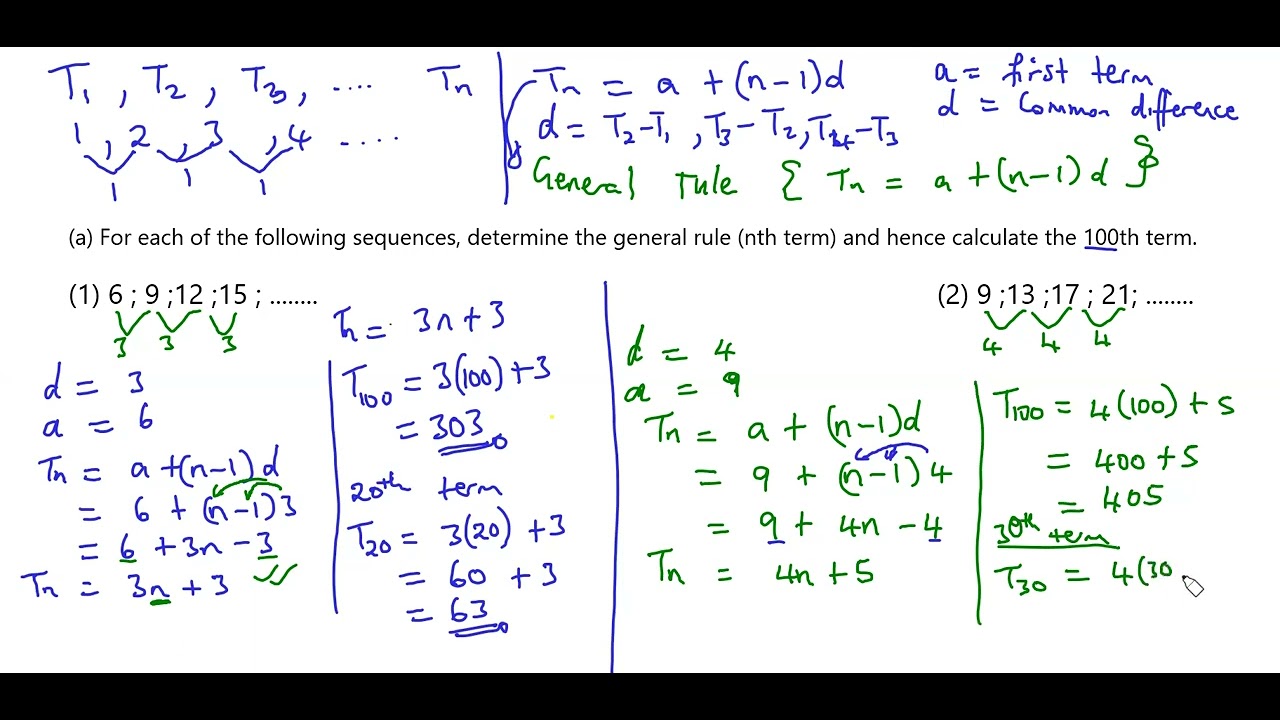 T1 , T2 , T3 , .... Tn
1 , 2 , 3 , 4 ....
1 1 1
Tn = a + (n-1)d
d = T2-T1 , T3-T2, T4-T3
General rule { Tn = a + (n-1)d }
a = first term
d = Common difference
(a) For each of the following sequences, determine the general rule (nth term) and hence calculate the 100th term.
(1) 6 ; 9 ;12 ;15 ; ........
3 3 3
d = 3
a = 6
Tn = a +(n-1)d
= 6 + (n-1)3
= 6 + 3n - 3
Tn = 3n + 3
Tn = 3n + 3
T100 = 3(100) + 3
= 303
20th term
T20 = 3(20) + 3
= 60 + 3
= 63
(2) 9 ;13 ;17 ; 21; ........
4 4 4
d = 4
a = 9
Tn = a + (n-1)d
= 9 + (n-1)4
= 9 + 4n - 4
Tn = 4n + 5
T100 = 4(100) + 5
= 400 + 5
= 405
30th term
T30 = 4(30